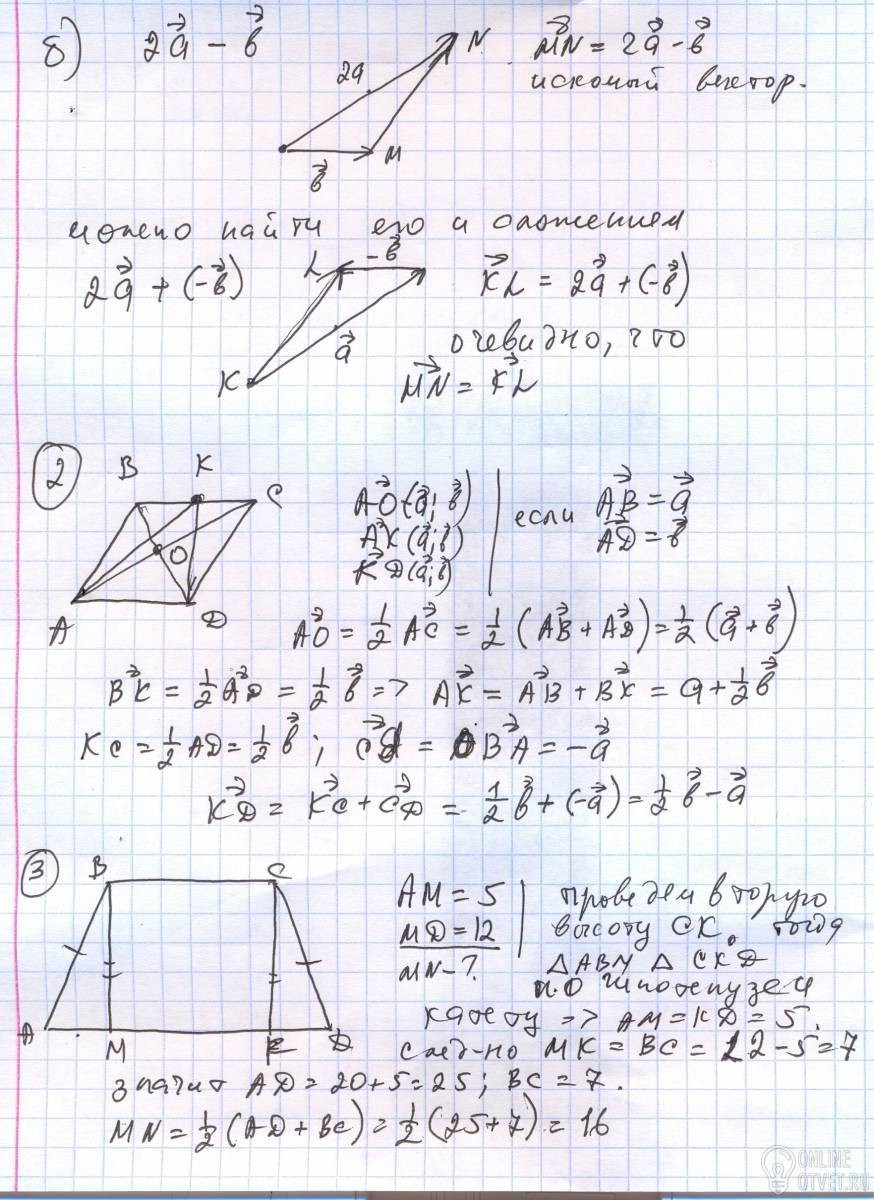 б) 2a⃗ - b⃗
2a
N
M
b⃗
MN⃗ = 2a⃗ - b⃗
искомый вектор.
можно найти его и сложением
2a⃗ + (-b⃗)
L
-b⃗
K
a⃗
KL⃗ = 2a⃗ + (-b⃗)
очевидно, что
MN⃗ = KL⃗
2
B K C
O
A D
AO⃗ (a⃗; b⃗)
AK⃗ (a⃗; b⃗)
KD⃗ (a⃗; b⃗)
если AB⃗ = a⃗
AD⃗ = b⃗
AO⃗ = 1/2 AC⃗ = 1/2 (AB⃗ + AD⃗) = 1/2 (a⃗ + b⃗)
BK⃗ = 1/2 AD⃗ = 1/2 b⃗ => AK⃗ = AB⃗ + BK⃗ = a + 1/2 b⃗
KC = 1/2 AD = 1/2 b⃗; CD⃗ = BA⃗ = -a⃗
KD⃗ = KC⃗ + CD⃗ = 1/2 b⃗ + (-a⃗) = 1/2 b⃗ - a⃗
3
B C
A M K D
AM = 5
MD = 12
MN - ?
проведем вторую
высоту CK, тогда
△ABM △CKD
по гипотенузе и
катету => AM = KD = 5.
след-но MK = BC = 12 - 5 = 7
значит AD = 20 + 5 = 25; BC = 7.
MN = 1/2 (AD + BC) = 1/2 (25 + 7) = 16
ONLINE
OTVET.RU